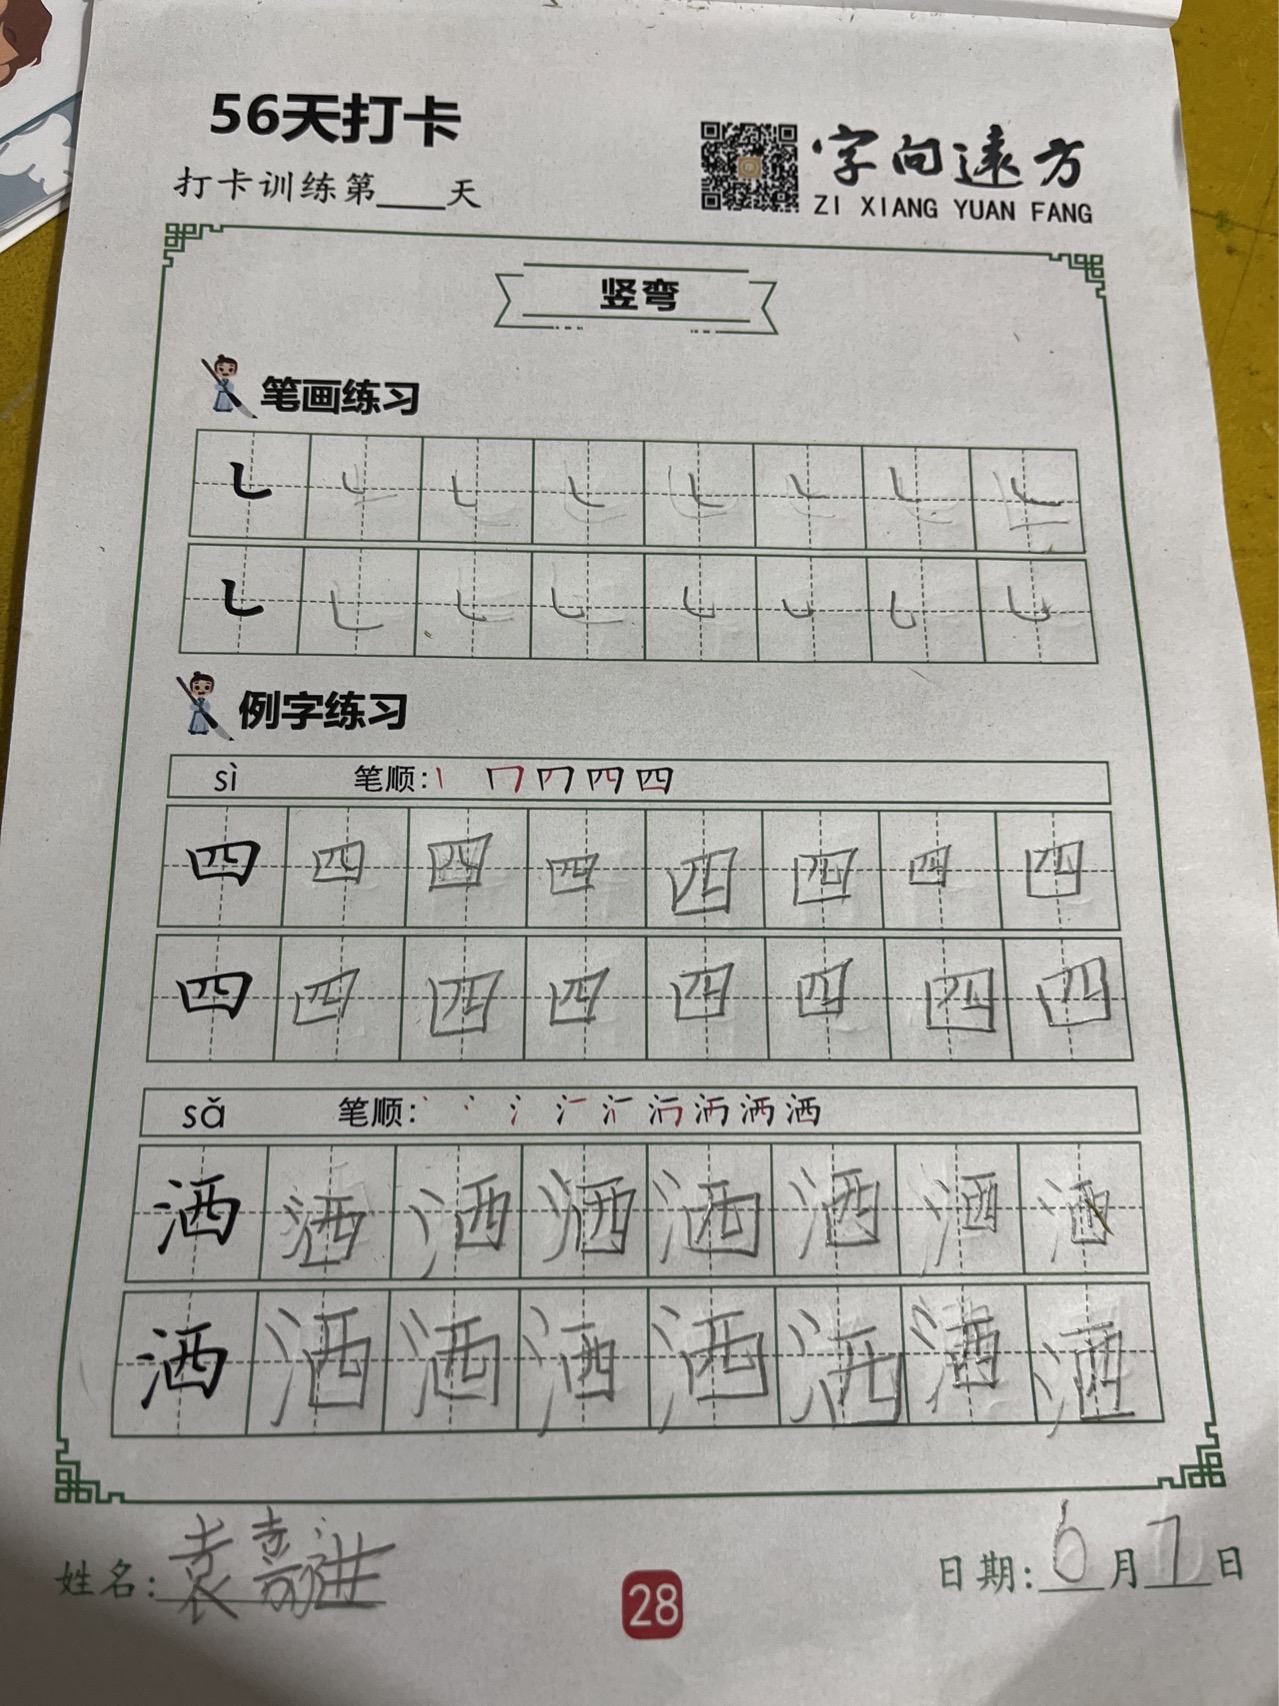 56天打卡
打卡训练第____天
字向远方
ZI XIANG YUAN FANG
竖弯
笔画练习
㇄ ㇄ ㇄ ㇄ ㇄ ㇄ ㇄ ㇄
㇄ ㇄ ㇄ ㇄ ㇄ ㇄ ㇄ ㇄
例字练习
sì 笔顺:
四 四 四 四 四 四 四 四
四 四 四 四 四 四 四 四
sǎ 笔顺:
洒 洒 洒 洒 洒 洒 洒 洒
洒 洒 洒 洒 洒 洒 洒 洒
姓名:袁嘉进 日期:6月7日
28